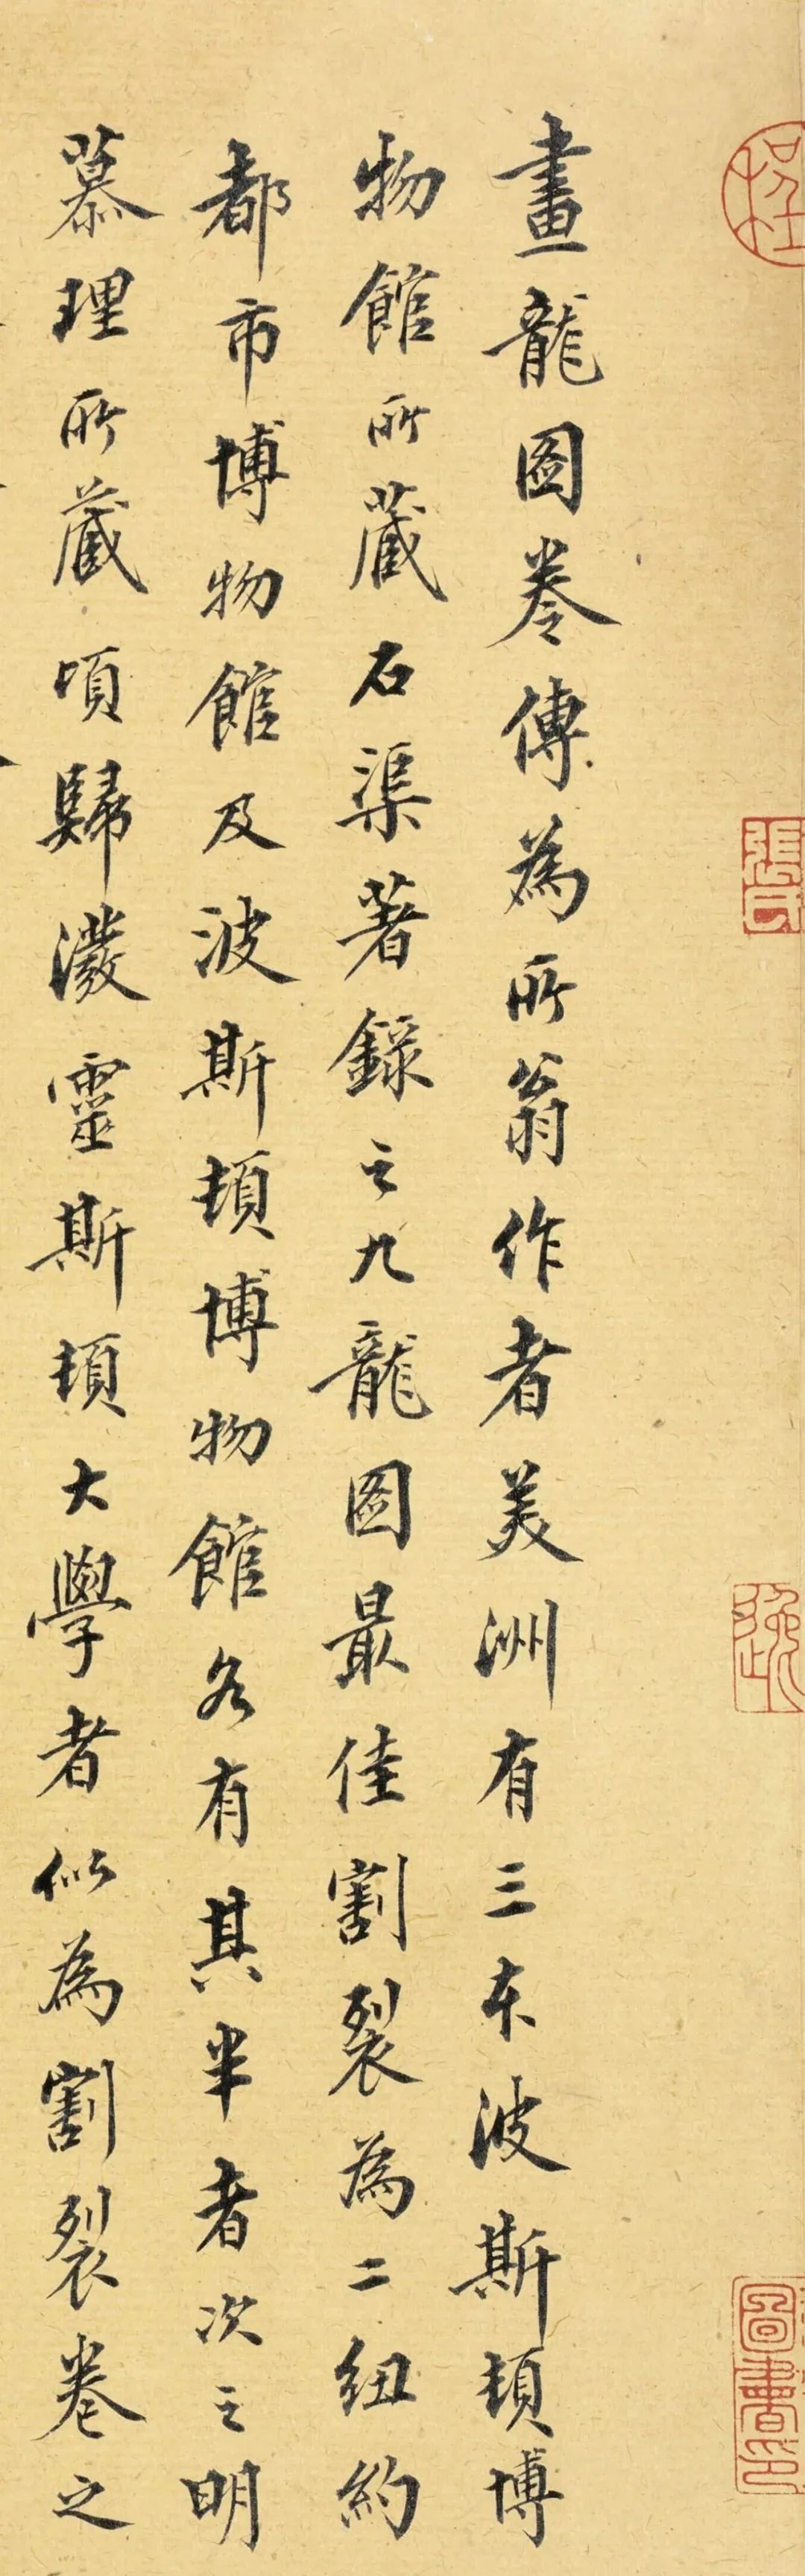 畫龍圖卷傳為所翁作者美洲有三本波斯頓博
物館所藏石渠著錄之九龍圖最佳割裂為二紐約
都市博物館及波斯頓博物館各有其半者次之明
慕理所藏頃歸潑靈斯頓大學者似為割裂卷之